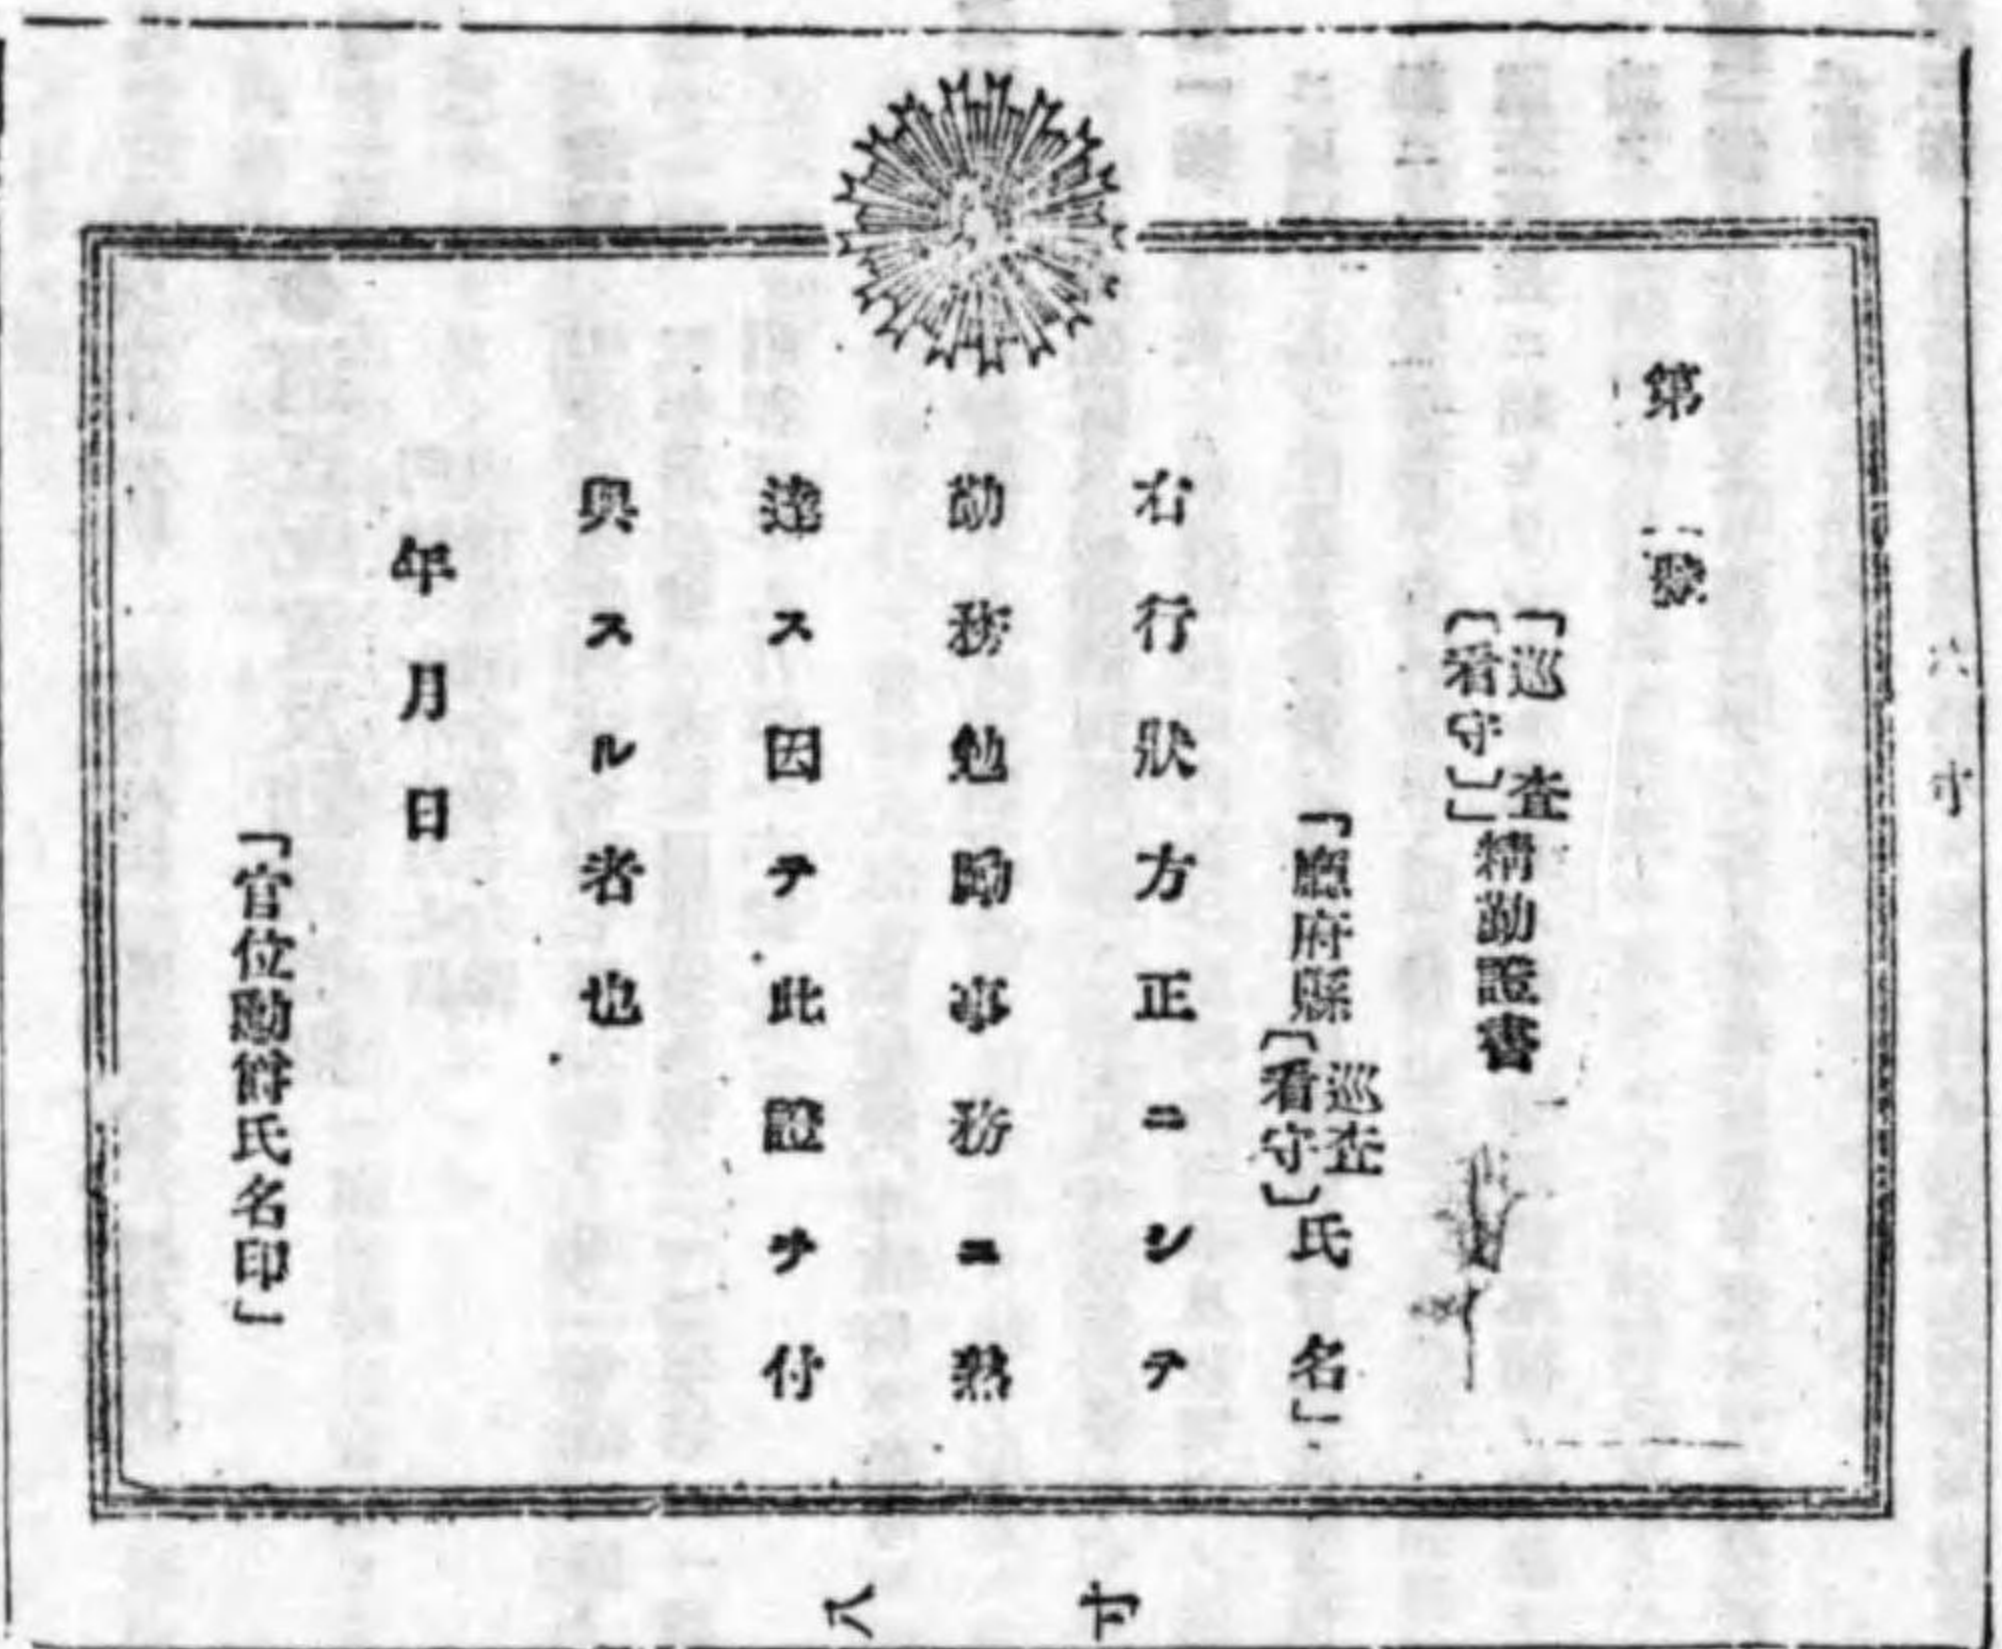 第　號
「巡査
〔看守〕」精勤證書
「廳府縣巡査
〔看守〕氏名」
右行狀方正ニシテ
勤務勉勵事務ニ熟
達ス因テ此證ヲ付
與スル者也
年月日
「官位勳爵氏名印」
六寸
八寸